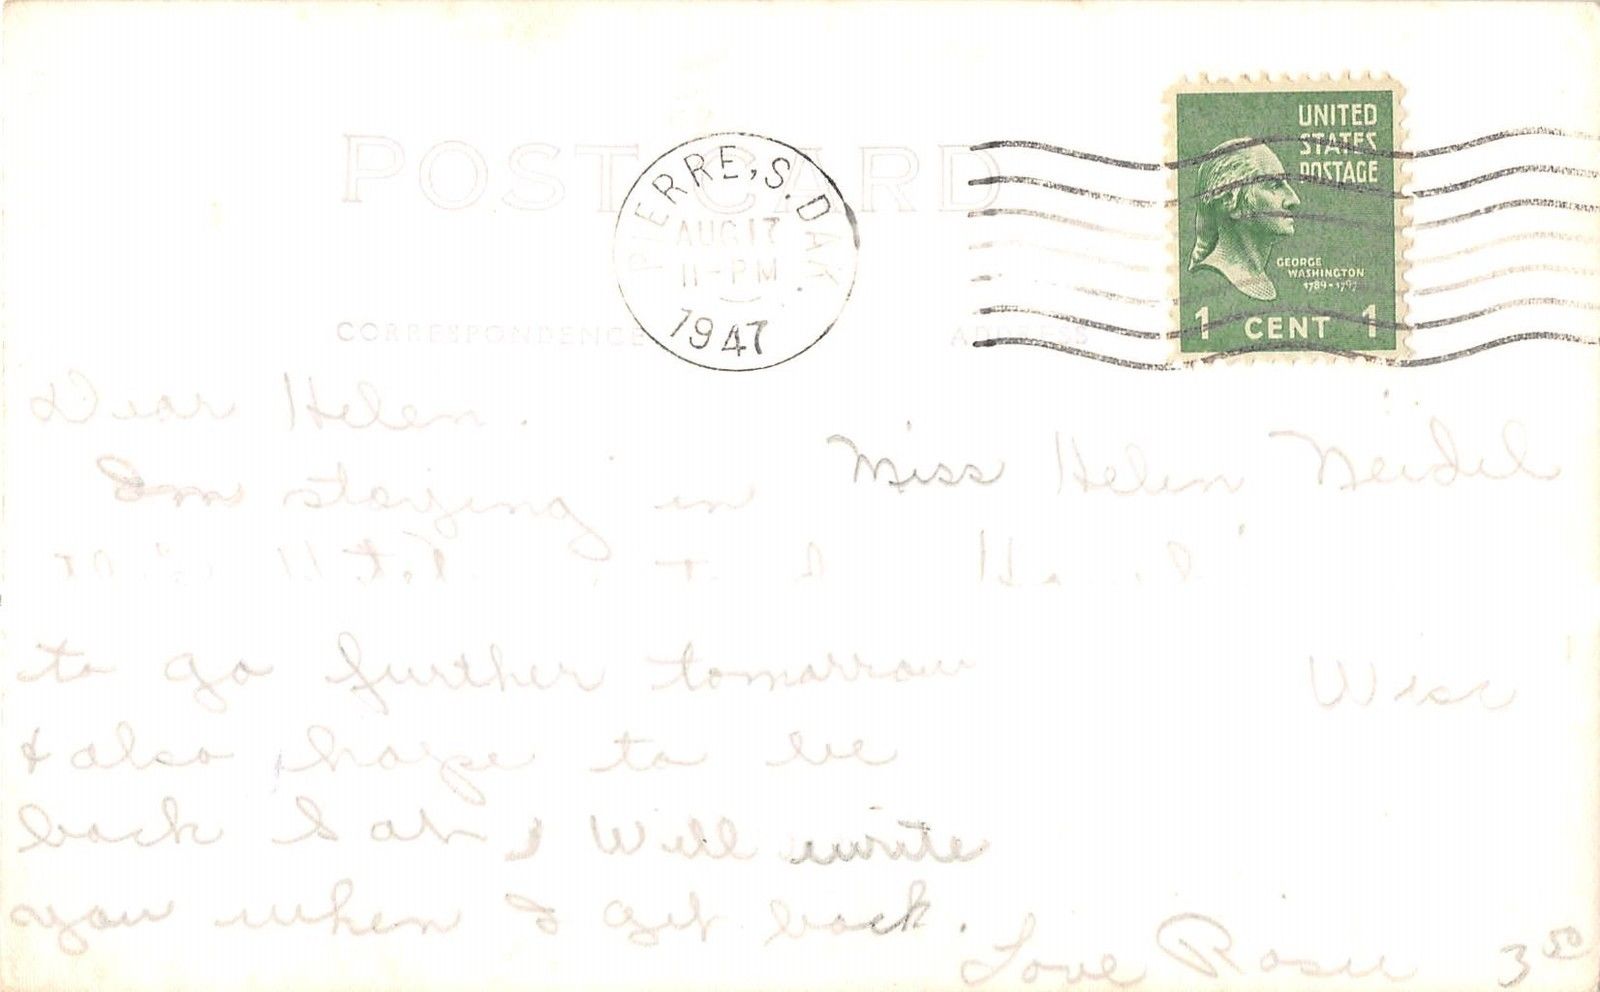 POST CARD
PIERRE, S. DAK.
AUG 17
11-PM
1947
UNITED
STATES
POSTAGE
GEORGE
WASHINGTON
1789-1797
1 CENT 1
CORRESPONDENCE
ADDRESS
Dear Helen.
Im staying in
Hotel
to go further tomorrow
& also hope to be
back Sat, Will write
you when I get back.
Love Rosie
Miss Helen Neidel
Wisc
3 50